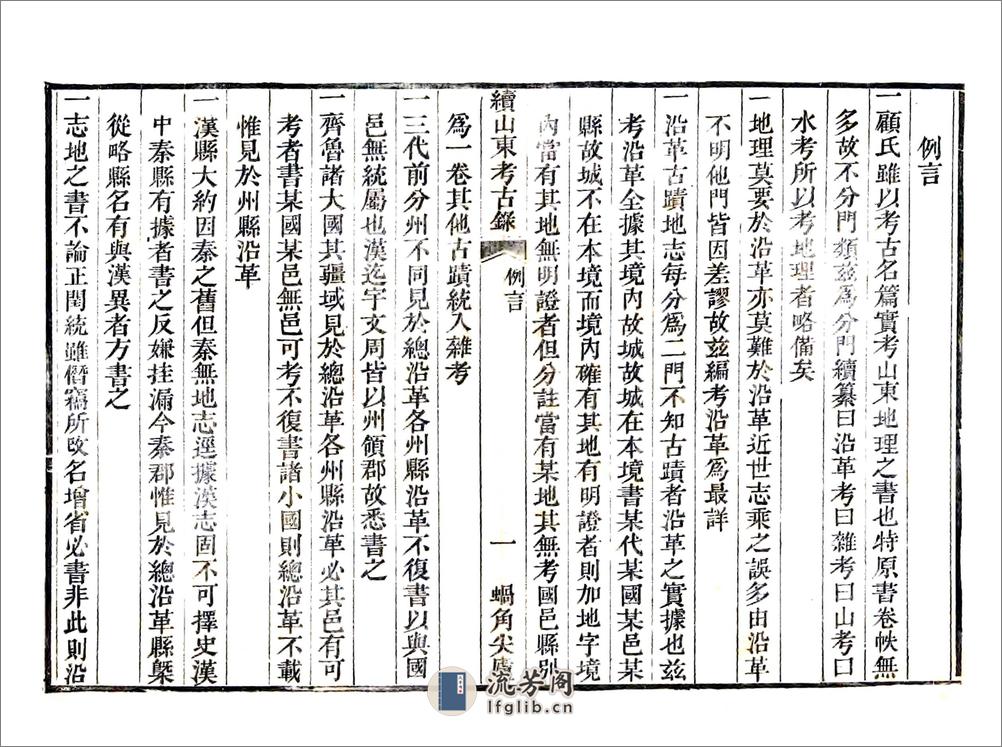 例言
一顧氏雖以考古名篇實考山東地理之書也特原書卷帙無
多故不分門類茲爲分門續纂曰沿革考曰雜考曰山考曰
水考所以考地理者略備矣
一地理莫要於沿革亦莫難於沿革近世志乘之誤多由沿革
不明他門皆因差謬故茲編考沿革爲最詳
一沿革古蹟地志每分爲二門不知古蹟者沿革之實據也茲
考沿革全據其境內故城故城在本境書某代某國某邑某
縣故城不在本境而境內確有其地有明證者則加地字境
內當有其地無明證者但分註當有某地其無考國邑縣別
續山東考古錄
例言
一
蝸角尖廬
爲一卷其他古蹟統入雜考
一三代前分州不同見於總沿革各州縣沿革不復書以與國
邑無統屬也漢迄宇文周皆以州領郡故悉書之
一齊魯諸大國其疆域見於總沿革各州縣沿革必其邑有可
考者書某國某邑無邑可考不復書諸小國則總沿革不載
惟見於州縣沿革
一漢縣大約因秦之舊但秦無地志逕據漢志固不可擇史漢
中秦縣有據者書之反嫌挂漏今秦郡惟見於總沿革縣槩
從略縣名有與漢異者方書之
一志地之書不論正閏統雖僭竊所改名增省必書非此則沿
流芳阁
lfglib.cn